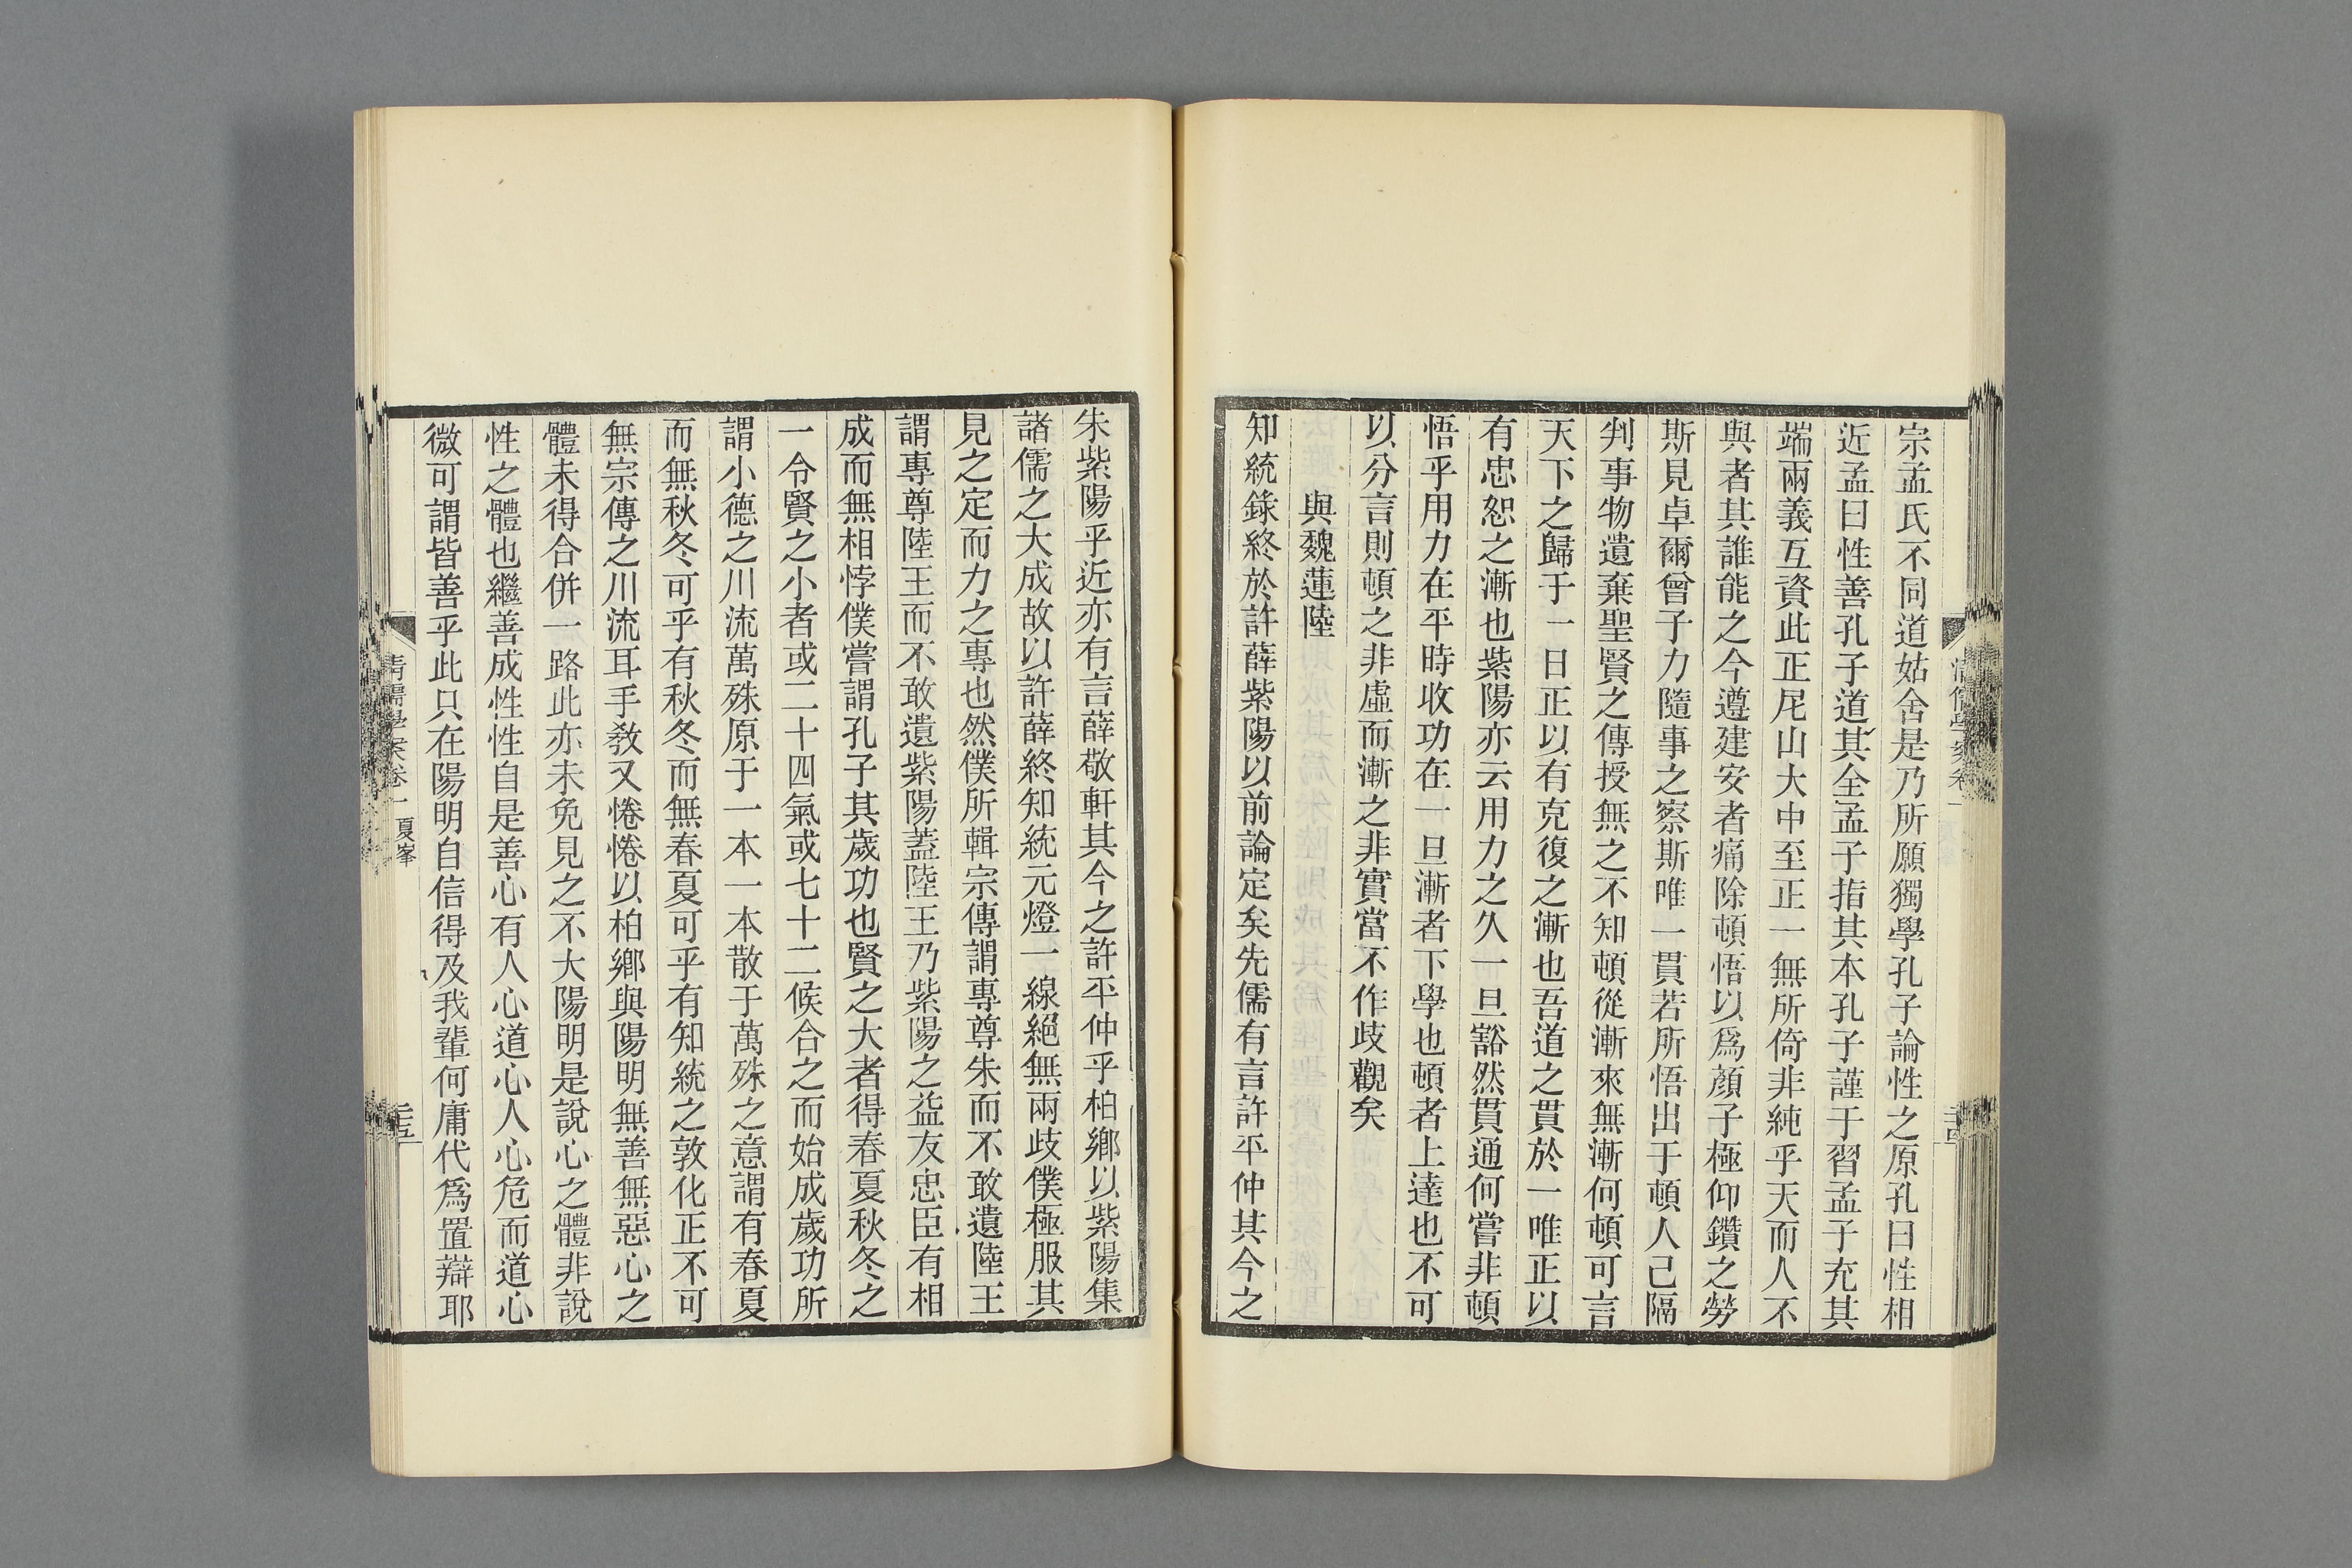 宗孟氏不同道姑舍是乃所願獨學孔子論性之原孔曰性相
近孟曰性善孔子道其全孟子指其本孔子謹于習孟子充其
端兩義互資此正尼山大中至正一無所倚非純乎天而人不
與者其誰能之今遵建安者痛除頓悟以爲顏子極仰鑽之勞
斯見卓爾曾子力隨事之察斯唯一貫若所悟出于頓人己隔
判事物遺棄聖賢之傳授無之不知頓從漸來無漸何頓可言
天下之歸于一日正以有克復之漸也吾道之貫於一唯正以
有忠恕之漸也紫陽亦云用力之久一旦豁然貫通何嘗非頓
悟乎用力在平時收功在一旦漸者下學也頓者上達也不可
以分言則頓之非虛而漸之非實當不作歧觀矣
與魏蓮陸
知統錄終於許薛紫陽以前論定矣先儒有言許平仲其今之
朱紫陽乎近亦有言薛敬軒其今之許平仲乎柏鄉以紫陽集
諸儒之大成故以許薛終知統元燈一線絕無兩歧僕極服其
見之定而力之專也然僕所輯宗傳謂專尊朱而不敢遺陸王
謂專尊陸王而不敢遺紫陽蓋陸王乃紫陽之益友忠臣有相
成而無相悖僕嘗謂孔子其歲功也賢之大者得春夏秋冬之
一令賢之小者或二十四氣或七十二候合之而始成歲功所
謂小德之川流萬殊原于一本一本散于萬殊之意謂有春夏
而無秋冬可乎有秋冬而無春夏可乎有知統之敦化正不可
無宗傳之川流耳手敎又惓惓以柏鄉與陽明無善無惡心之
體未得合併一路此亦未免見之不大陽明是說心之體非說
性之體也繼善成性性自是善心有人心道心人心危而道心
微可謂皆善乎此只在陽明自信得及我輩何庸代爲置辯耶
清儒學案卷一 夏峯